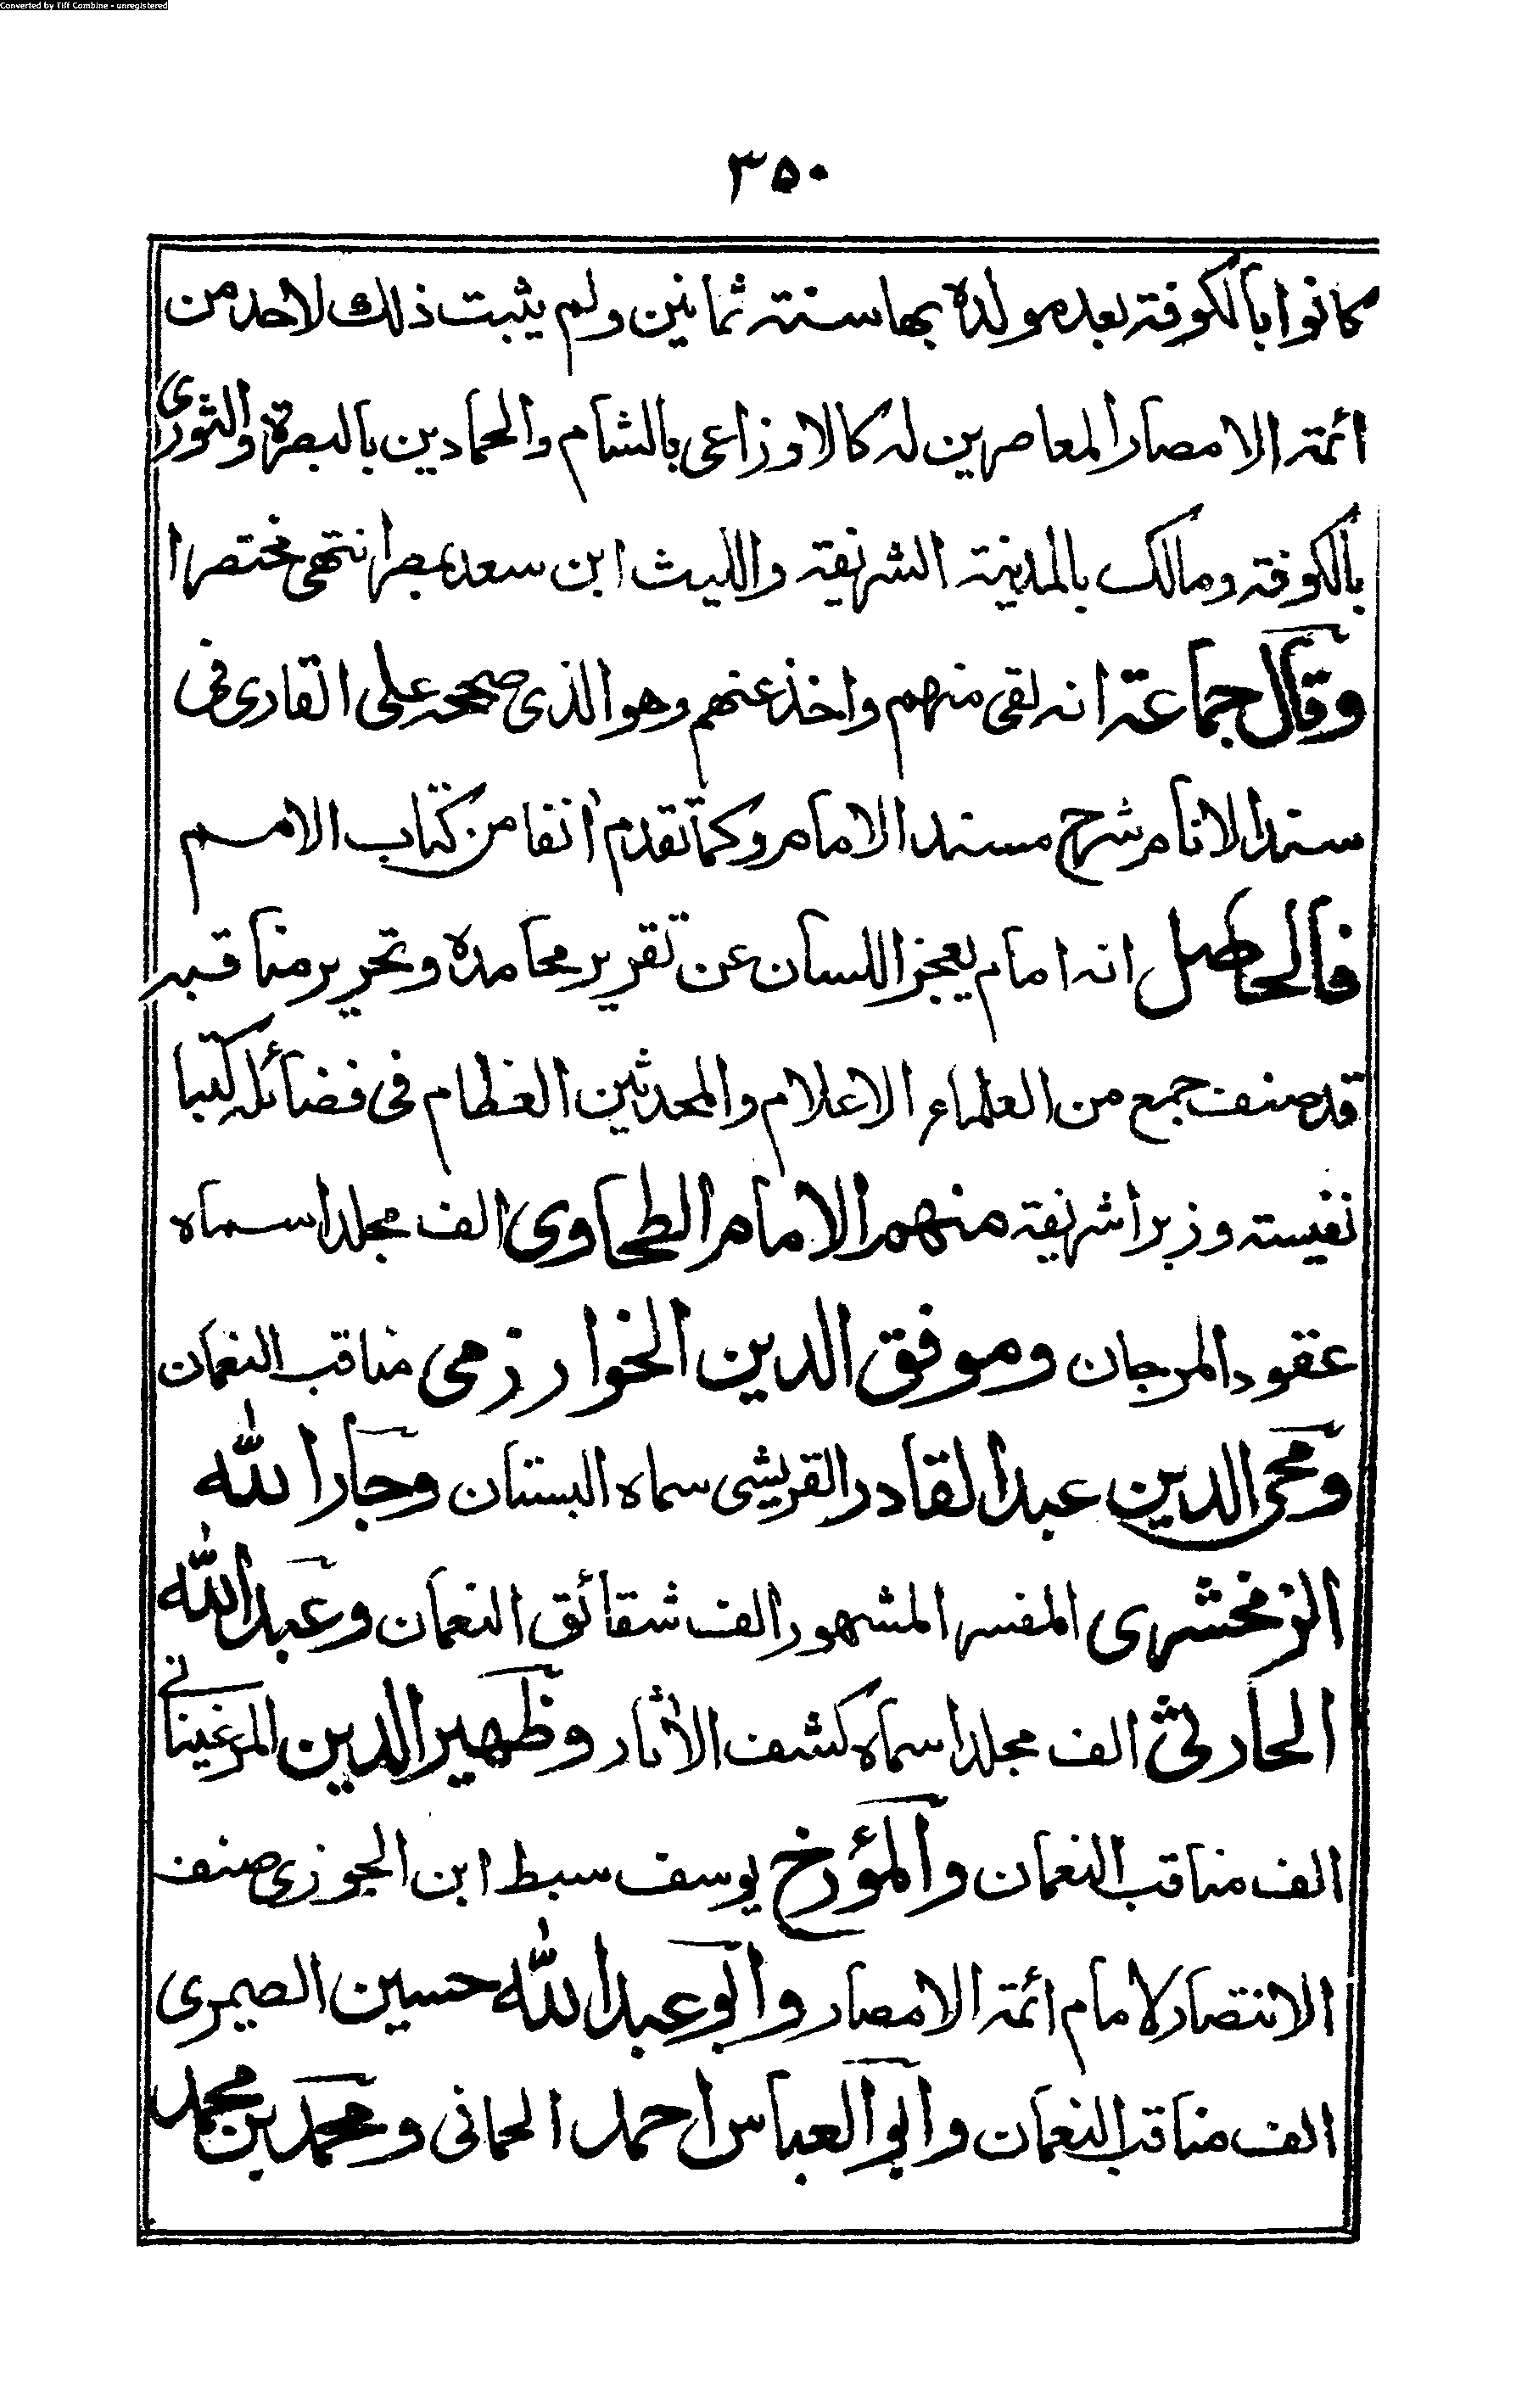 Converted by Tiff Combine - unregistered
٣٥٠
كانوا بالكوفة بعد مولده بها سنة ثمانين ولم يثبت ذلك لاحد من
ائمة الامصار المعاصرين له كالاوزاعى بالشام والحمادين بالبصرة والثورى
بالكوفة ومالك بالمدينة الشريفة والليث ابن سعد بمصر انتهى مختصرا
وقال جماعة انه لقى منهم واخذ عنهم وهو الذى صححه على القارى فى
سند الانام شرح مسند الامام وكما تقدم انفا من كتاب الامم
فالحاصل انه امام يعجز اللسان عن تقرير محامده وتحرير مناقبه
قد صنف جمع من العلماء الاعلام والمحدثين العظام فى فضائله كتبا
نفيسة وزبرا شريفة منهم الامام الطحاوى الف مجلدا سماه
عقود المرجان وموفق الدين الخوارزمى مناقب النعمان
ومحى الدين عبد القادر القريشى سماه البستان وجار الله
الزمخشرى المفسر المشهور الف شقائق النعمان وعبد الله
الحارثى الف مجلدا سماه كشف الاثار وظهير الدين المرغينانى
الف مناقب النعمان والمؤرخ يوسف سبط ابن الجوزى صنف
الانتصار لامام ائمة الامصار وابو عبد الله حسين الصيمرى
الف مناقب النعمان وابو العباس احمد الحمانى ومحمد بن محمد